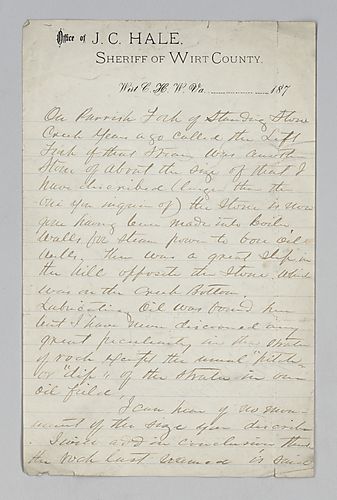 Office of J. C. HALE,
SHERIFF OF WIRT COUNTY.
Wirt C. H. W. Va. 187
On Parrish Fork of Standing Stone
Creek years ago called the Left
Fork of that Stream was another
Stone of about the size of that I
have described (larger than the
one you inquire of) the Stone is now
gone having been made into Boiler
Walls for steam power to bore oil
wells. there was a great slip in
the hill opposite the Stone which
was in the Creek Bottom.
Lubricating Oil was found here
but I have never discovered any
great peculiarity in the strata
of rock except the usual "pitch"
or "dip" of the strata in our
oil field.
I can hear of no monument
of the size you describe
I will add in conclusion that
the rock last is said